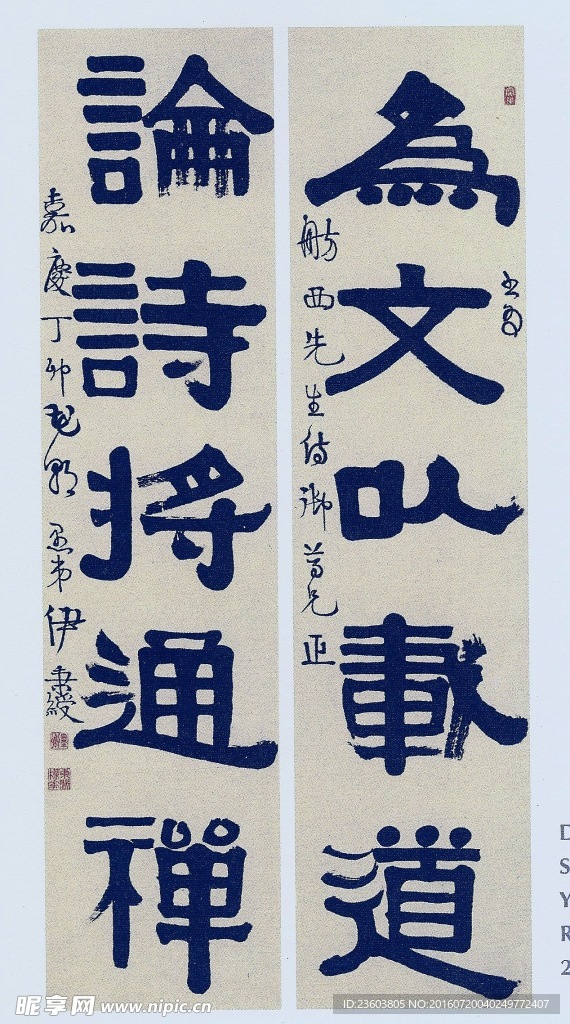 為文以載道
書為
舫西先生侍御尊兄正
論詩將通禪
嘉慶丁卯花朝 愚弟伊秉綬
D
S
Y
R
2
昵享网 www.nipic.cn
ID:23603805 NO:20160720040249772407